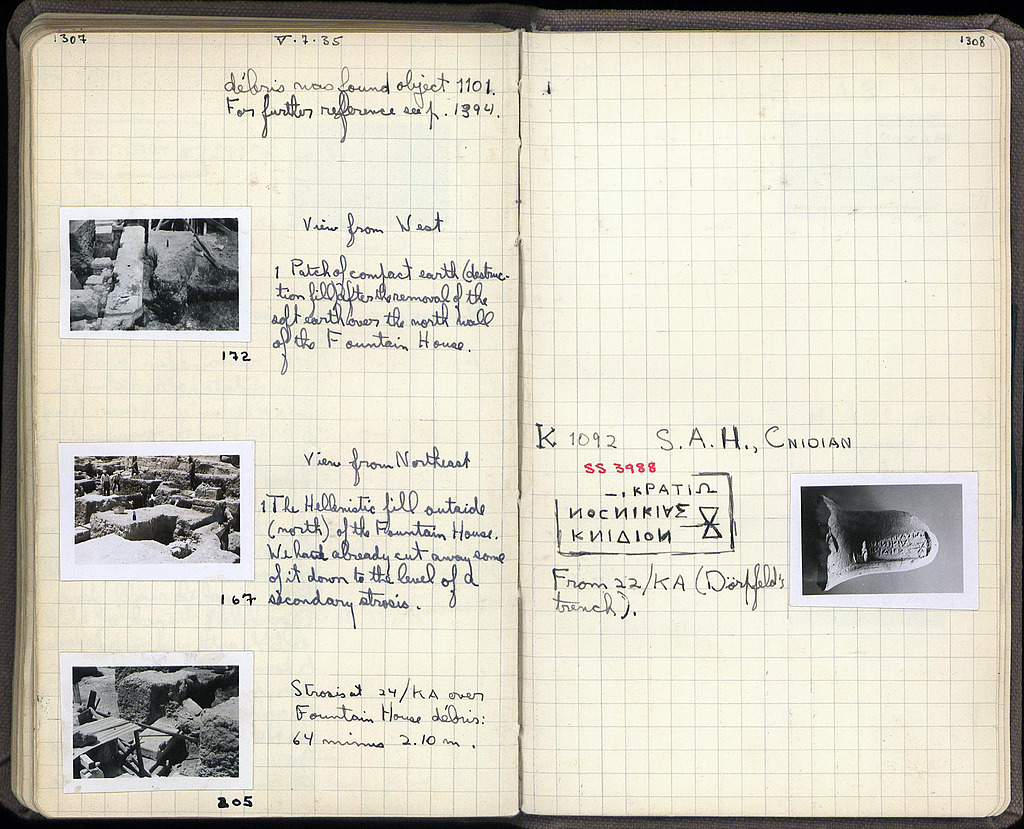 1307
V·7·35
débris was found object 1101.
For further reference see p. 1394.
View from West
1 Patch of compact earth (destruc-
tion fill) after the removal of the
soft earth over the north wall
of the Fountain House.
172
View from Northeast
1 The Hellenistic fill outside
(north) of the Fountain House.
We had already cut away some
of it down to the level of a
secondary strosis.
167
Strosis at 24/KA over
Fountain House débris:
64 minus 2.10 m.
205
1308
K 1092 S.A.H., CNIDIAN
SS 3988
ΚΡΑΤΙΩ
ΝΟΣΝΙΚΙΑΣ
ΚΝΙΔΙΟΝ
From 22/KA (Dörpfeld's
trench).